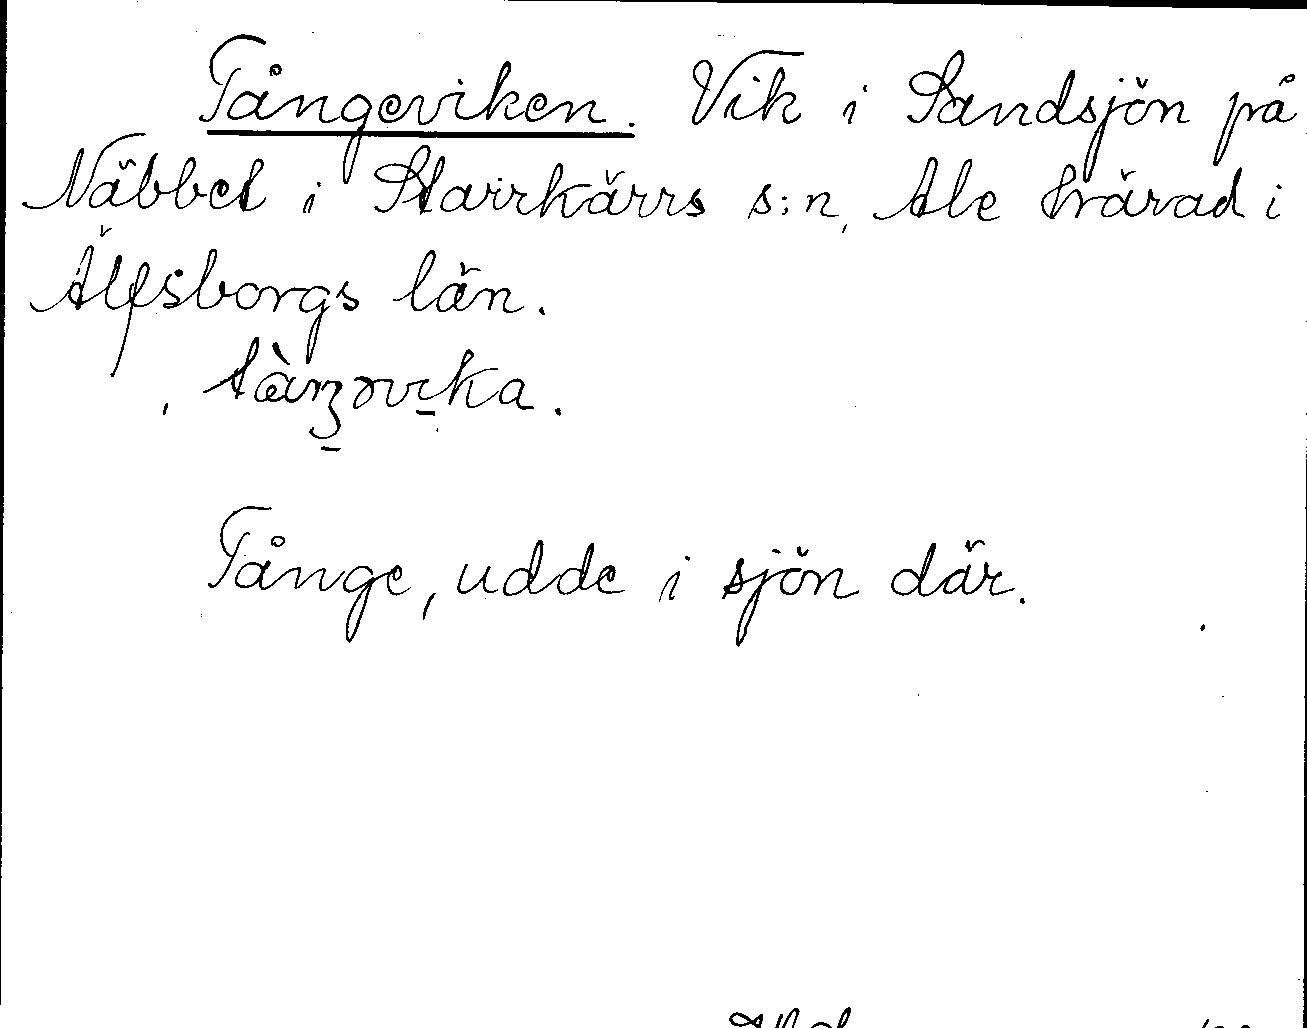 Tångeviken. Vik i Sandsjön på
Näbbet i Starrkärrs s:n, Ale härad i
Älfsborgs län.
Tånge, udde i sjön där.